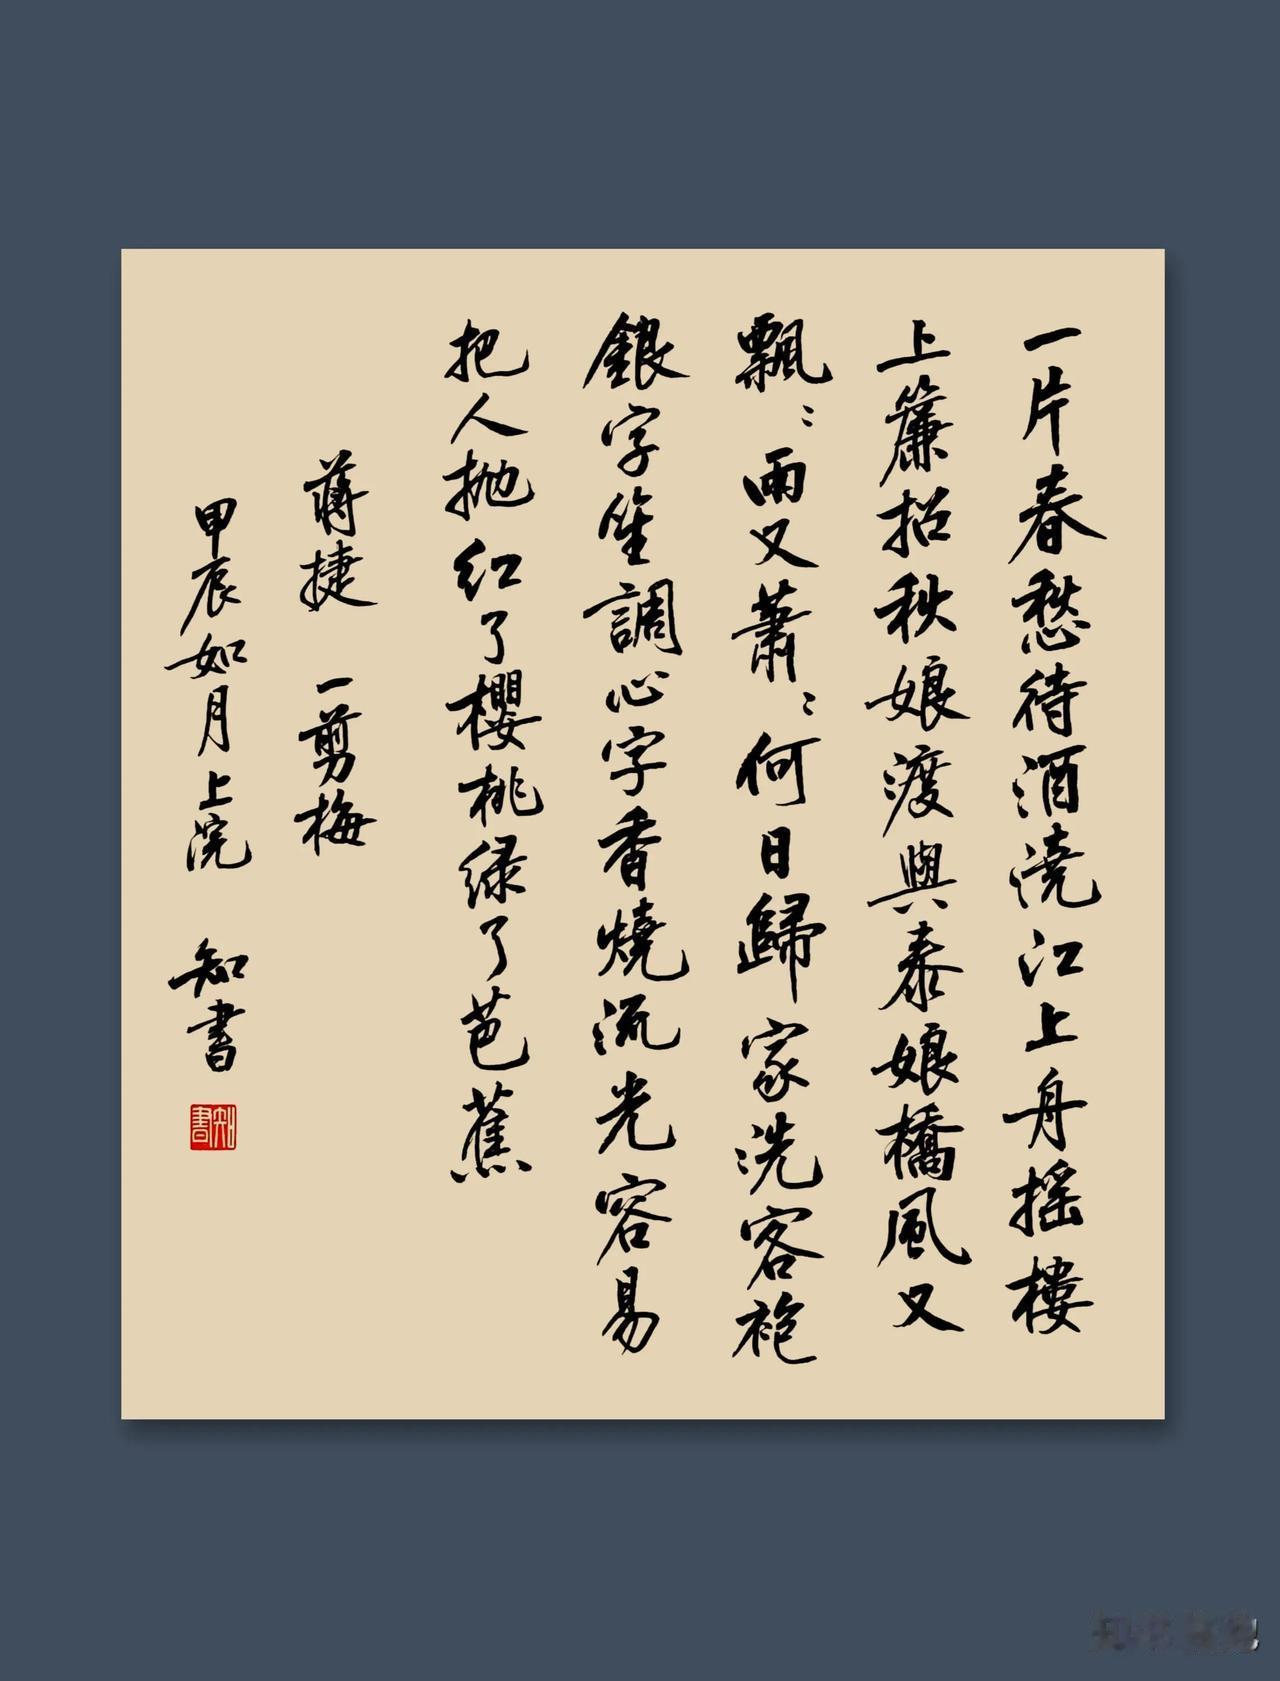 一片春愁待酒澆江上舟摇樓
上簾招秋娘渡與泰娘橋風又
飄：雨又蕭：何日歸家洗客袍
銀字笙調心字香燒流光容易
把人抛紅了櫻桃緑了芭蕉
蔣捷 一剪梅
甲辰如月上浣 知書
知書